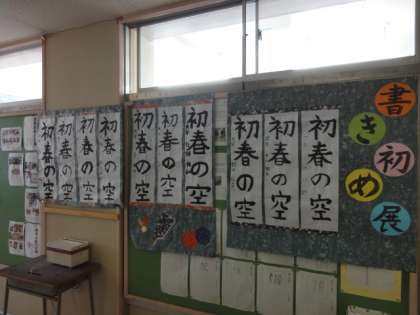 書き初め展
初春の空
初春の空
初春の空
初春の空
初春の空
初春の空
初春の空
初春の空
初春の空
初春の空